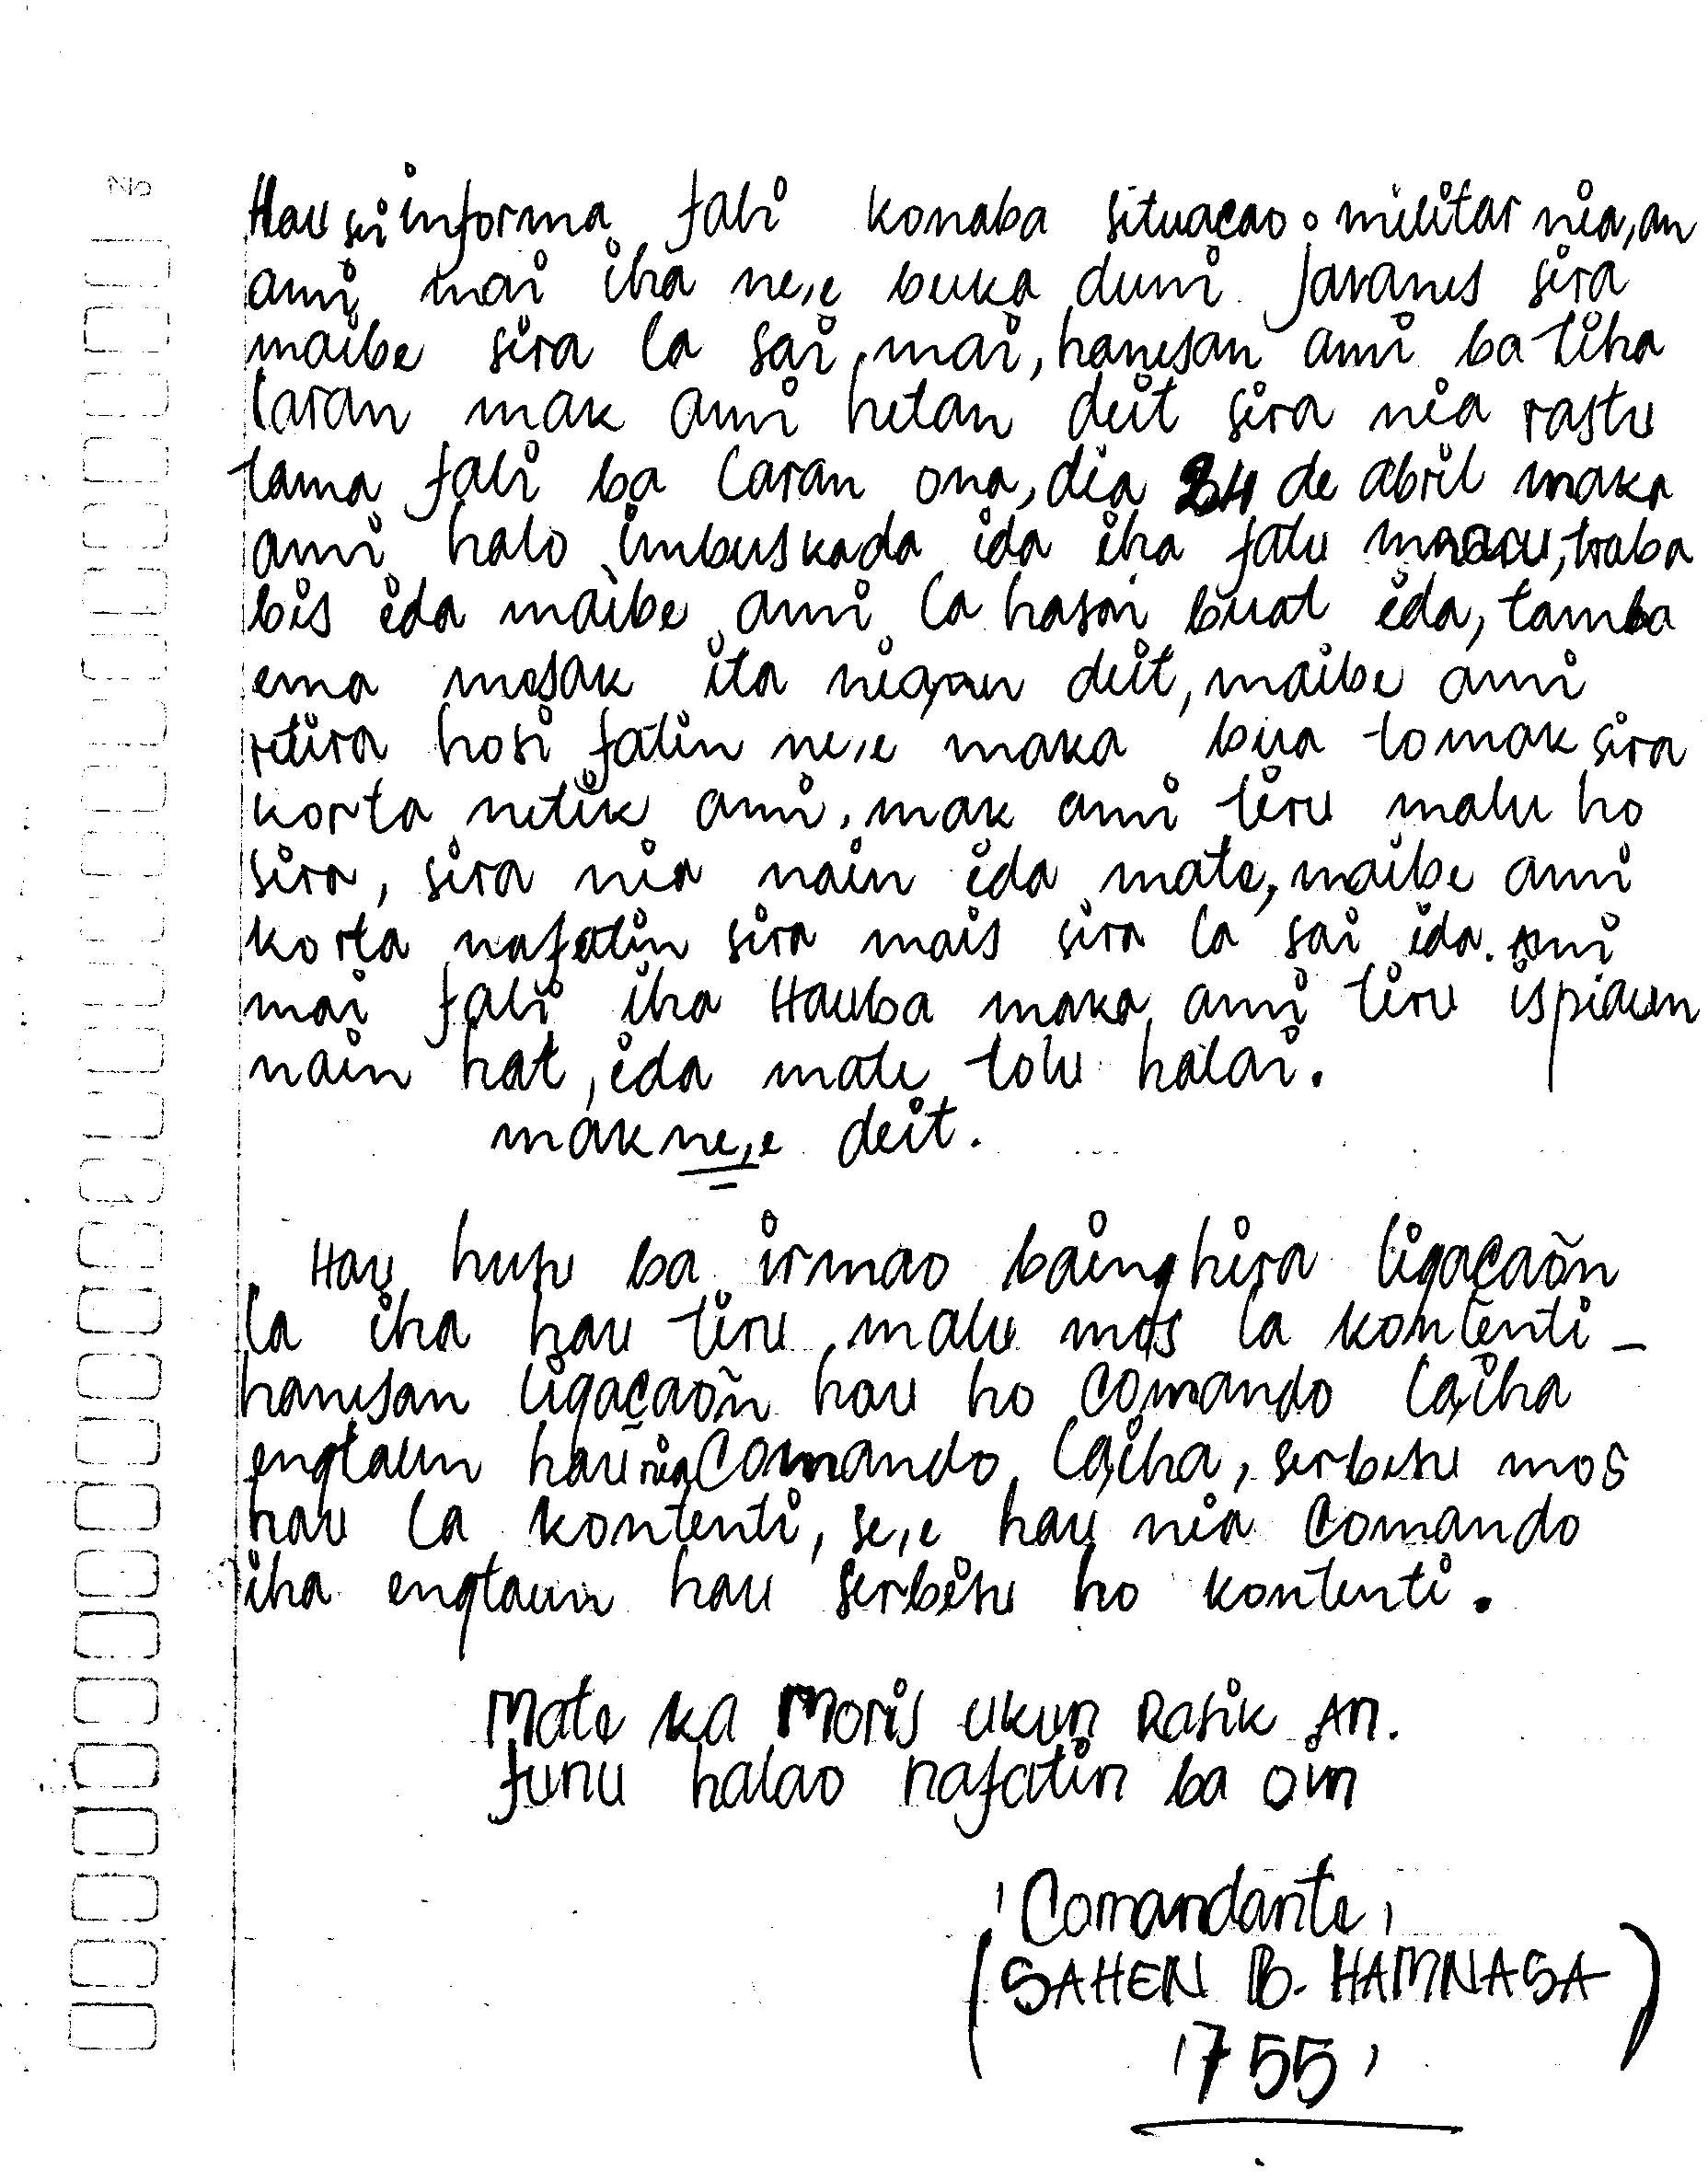 No
Hau sei informa fali konaba situaçao militar nia, an
ami mai iha ne,e buka duni Javanes sira
maibe sira la sai mai, hanesan ami ba tiha
laran mak ami hetan deit sira nia rastu
tama fali ba laran ona, dia 24 de abril maka
ami halo imbuskada ida iha fatu, traba
bis ida maibe ami la hasai buat ida, tamba
ema mesak ita nian deit, maibe ami
retira hosi fatin ne,e maka bua tomak sira
korta netik ami, mak ami tiru malu ho
sira, sira nia nain ida mate, maibe ami
korta nafatin sira mais sira la sai ida. Ami
mai fali iha Hauba maka ami tiru ispiaun
nain hat, ida mate tolu halai.
mak ne,e deit.
Hau husu ba irmao bainghira ligaçaõn
la iha hau tiru malu mos la kontenti -
hanesan ligaçaõn hau ho Comando laiha
engtaun hau nia Comando laiha, serbisu mos
hau la kontenti, se,e hau nia Comando
iha engtaun hau serbisu ho kontenti.
Mate ka Moris ukun Rasik An.
funu halao nafatin ba oin
Comandante,
(SAHEN B. HAMNASA)
1755,